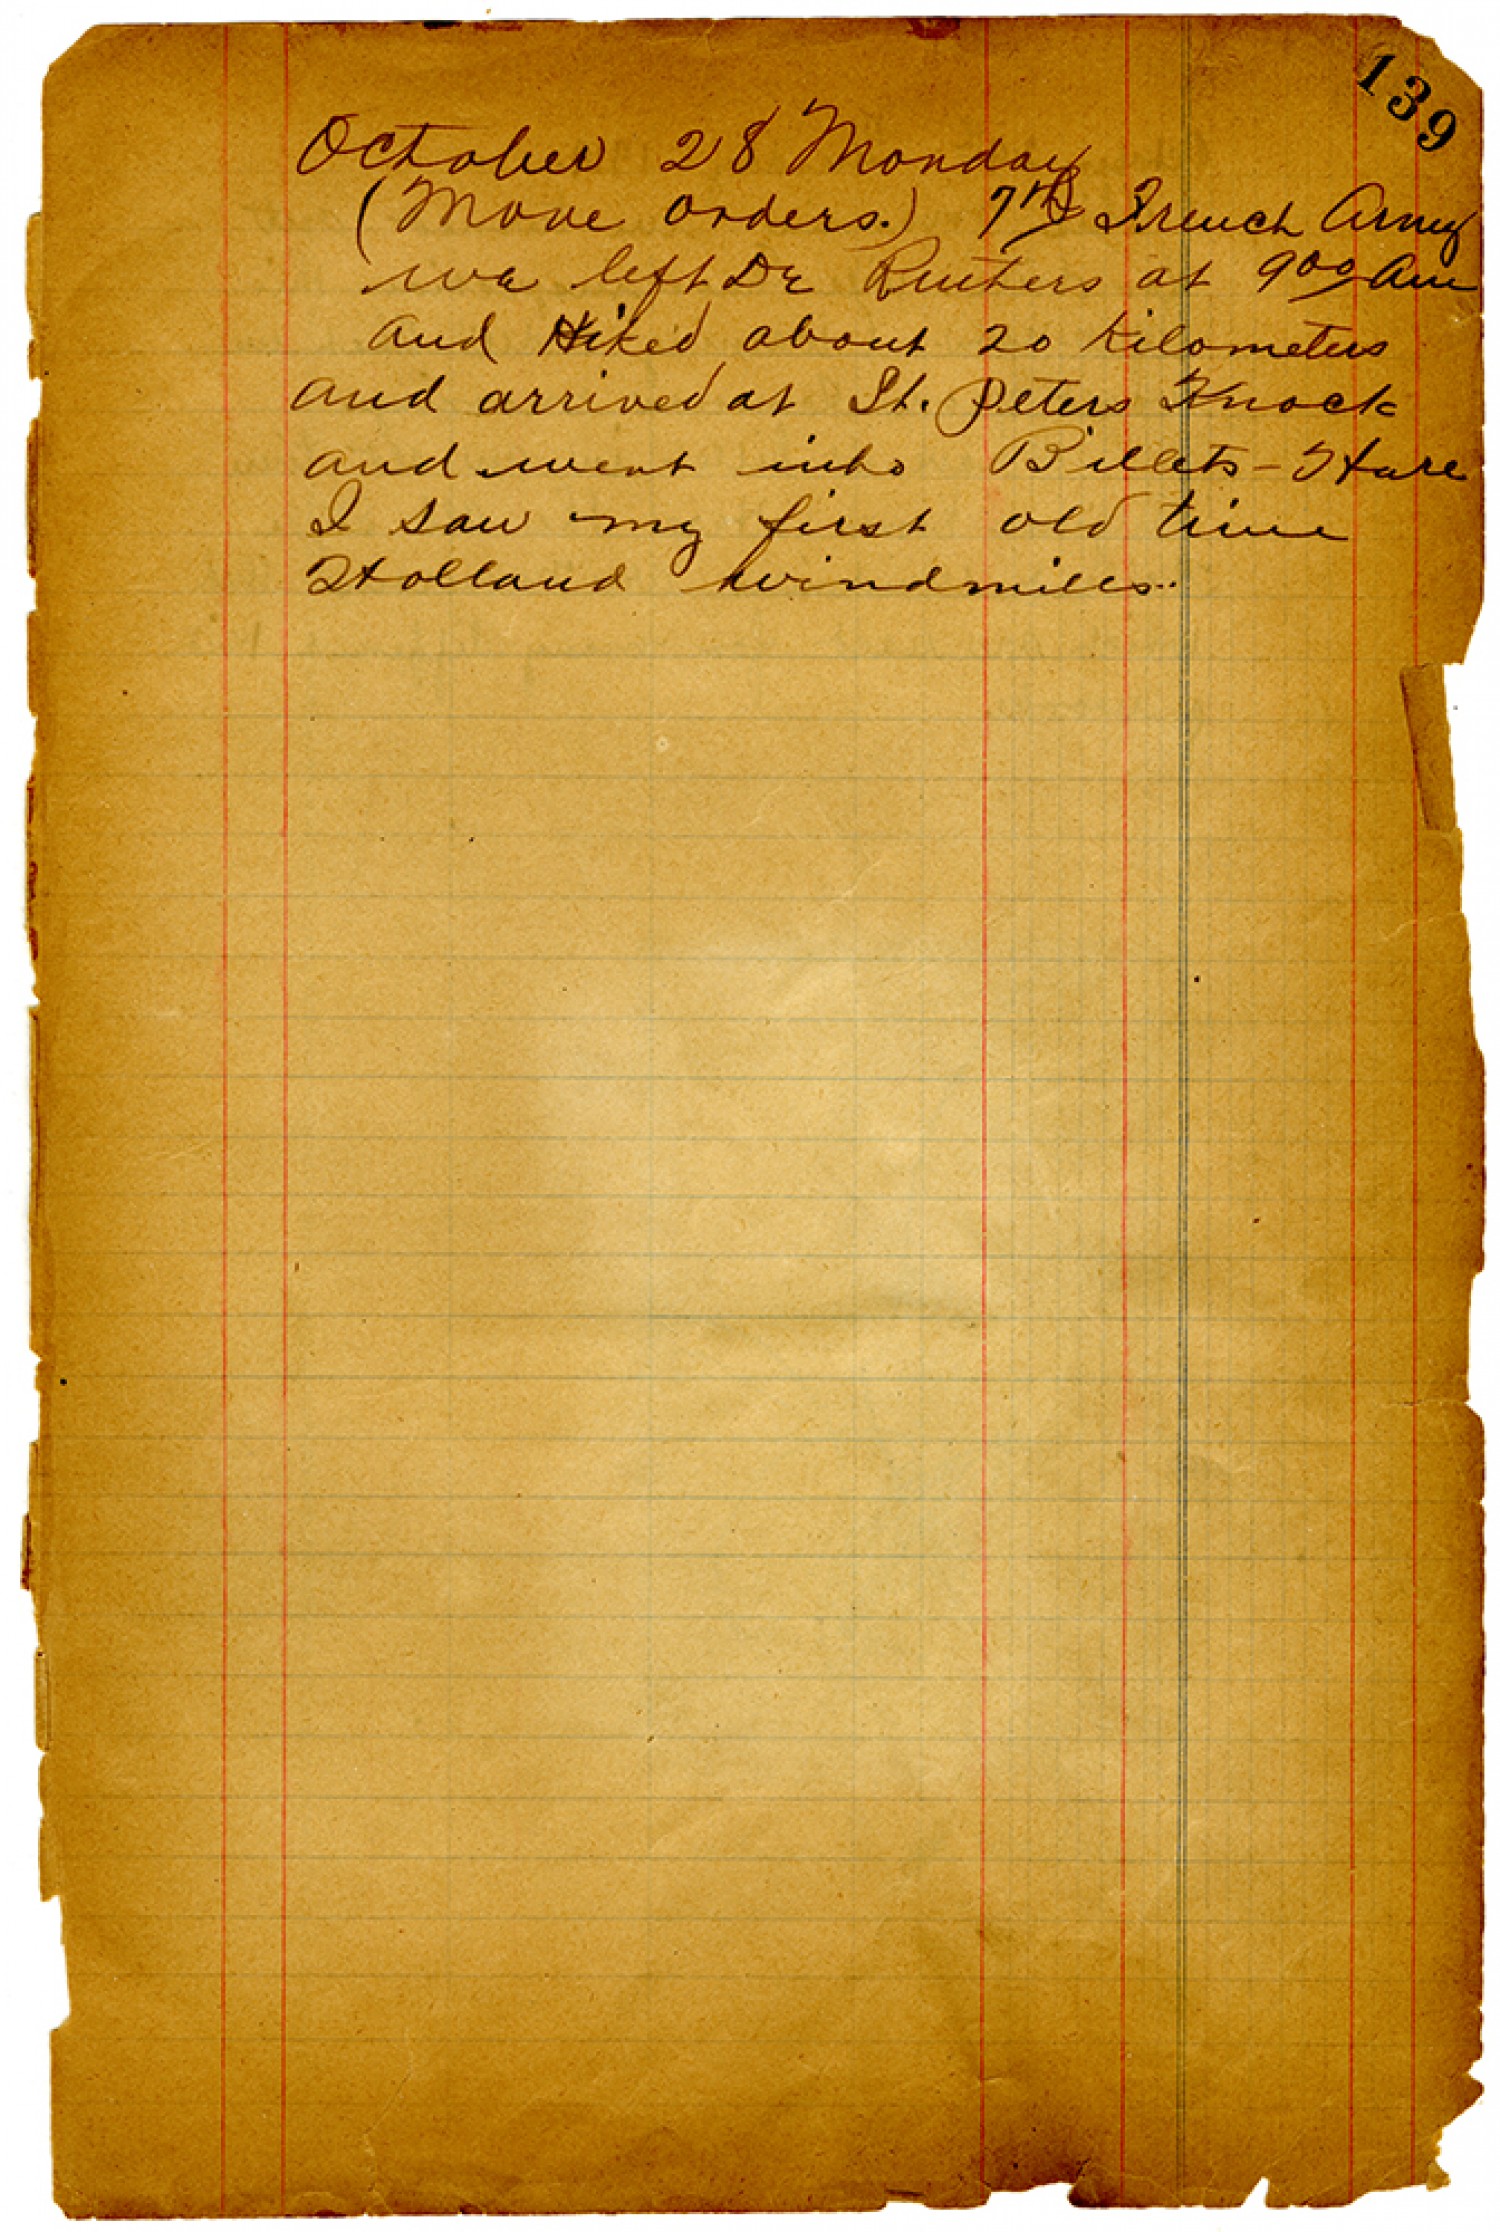 139
October 28 Monday
(Move orders.) 7th French Army
we left De Ruiters at 9 00 Am
and Hiked about 20 Kilometers
and arrived at St. Peters Knock
and went into Billets - Hare
I saw my first old time
Holland windmills..